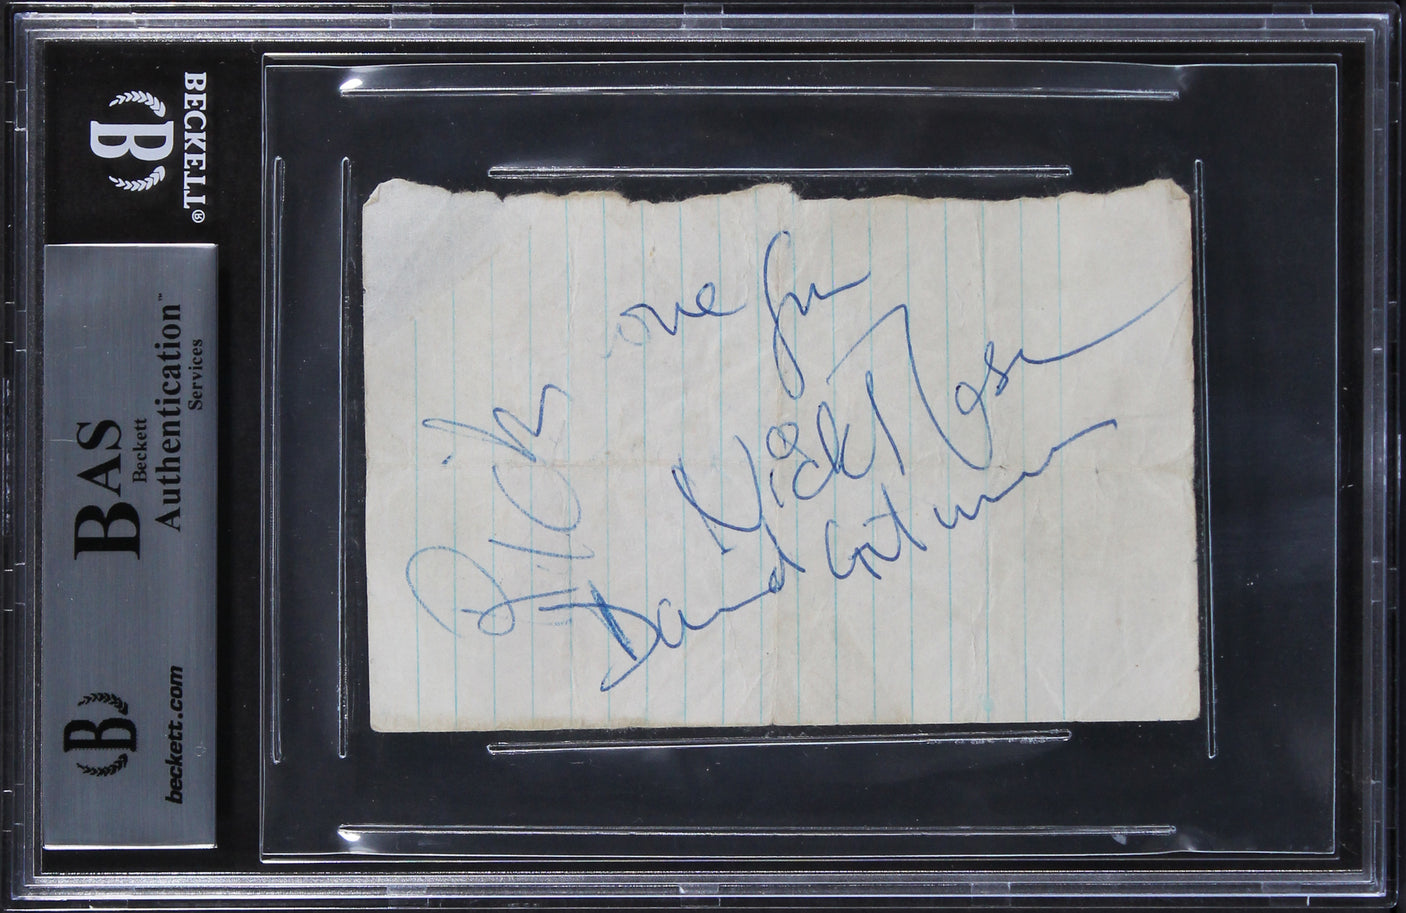 BECKETT®
B
BAS
Beckett
Authentication™
Services
B
beckett.com
one for
Nick Mason
David Gilmour